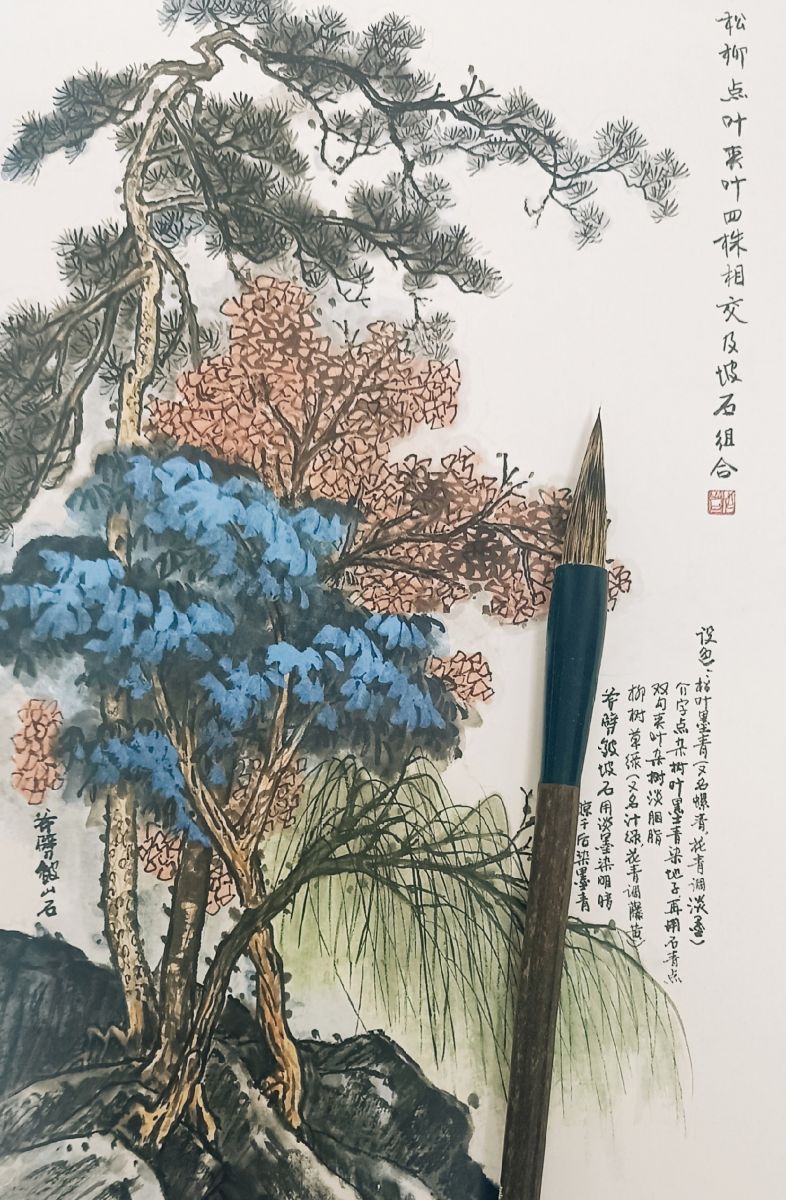 松柳点叶夹叶四株相交及坡石组合
设色：松叶墨青（又名螺青花青调淡墨）
介字点杂树叶墨青染地子再用石青点
双勾夹叶杂树淡胭脂
柳树草绿（又名汁绿花青调藤黄）
斧劈皴坡石用淡墨染明暗
晾干后染墨青
斧劈皴山石